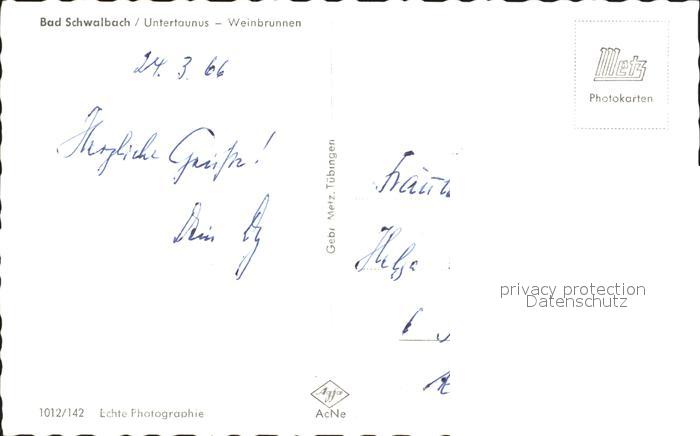 Bad Schwalbach / Untertaunus – Weinbrunnen
24. 3. 66
Herzliche Grüße!
Dein
Gebr. Metz, Tübingen
Metz
Photokarten
Helga
6
privacy protection
Datenschutz
1012/142 Echte Photographie
Agfa
AcNe